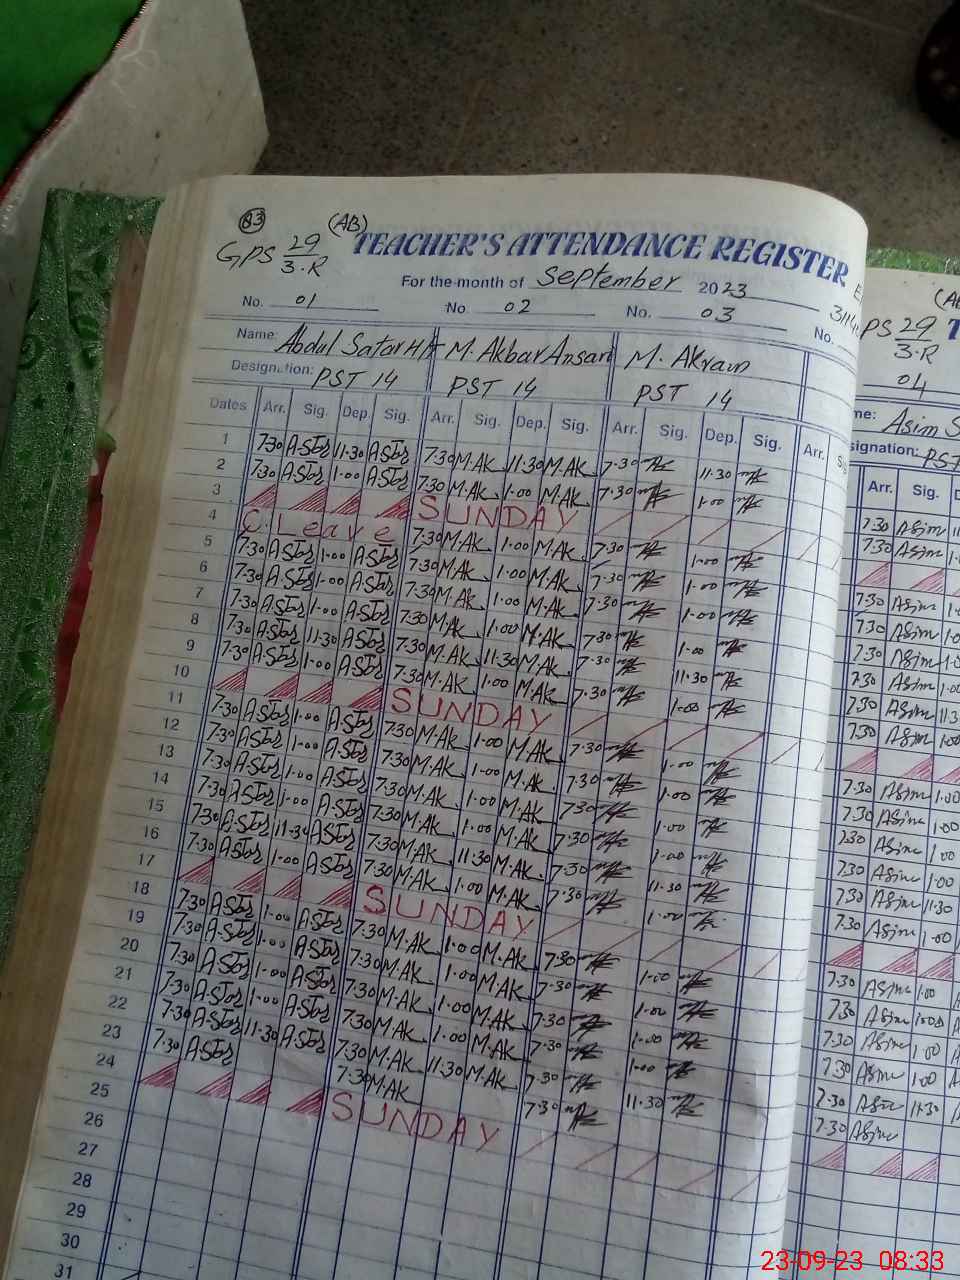 83
(AB)
GPS 29/3.R TEACHER'S ATTENDANCE REGISTER
For the month of September 2023
No. 01 No. 02 No. 03 No.
Name: Abdul Satar M. Akbar Ansari M. Akram
Designation: PST 14 PST 14 PST 14
Dates Arr. Sig. Dep. Sig. Arr. Sig. Dep. Sig. Arr. Sig. Dep. Sig. Arr.
1 7.30 A.Star 11.30 A.Star 7.30 M.AK 11.30 M.AK 7.30 11.30
2 7.30 A.Star 1.00 A.Star 7.30 M.AK 1.00 M.AK 7.30 1.00
3 SUNDAY
4 C.Leave 7.30 M.AK 1.00 M.AK 7.30 1.00
5 7.30 A.Star 1.00 A.Star 7.30 M.AK 1.00 M.AK 7.30 1.00
6 7.30 A.Star 1.00 A.Star 7.30 M.AK 1.00 M.AK 7.30 1.00
7 7.30 A.Star 1.00 A.Star 7.30 M.AK 1.00 M.AK 7.30 1.00
8 7.30 A.Star 11.30 A.Star 7.30 M.AK 11.30 M.AK 7.30 11.30
9 7.30 A.Star 1.00 A.Star 7.30 M.AK 1.00 M.AK 7.30 1.00
10 SUNDAY
11 7.30 A.Star 1.00 A.Star 7.30 M.AK 1.00 M.AK 7.30 1.00
12 7.30 A.Star 1.00 A.Star 7.30 M.AK 1.00 M.AK 7.30 1.00
13 7.30 A.Star 1.00 A.Star 7.30 M.AK 1.00 M.AK 7.30 1.00
14 7.30 A.Star 1.00 A.Star 7.30 M.AK 1.00 M.AK 7.30 1.00
15 7.30 A.Star 11.30 A.Star 7.30 M.AK 11.30 M.AK 7.30 11.30
16 7.30 A.Star 1.00 A.Star 7.30 M.AK 1.00 M.AK 7.30 1.00
17 SUNDAY
18 7.30 A.Star 1.00 A.Star 7.30 M.AK 1.00 M.AK 7.30 1.00
19 7.30 A.Star 1.00 A.Star 7.30 M.AK 1.00 M.AK 7.30 1.00
20 7.30 A.Star 1.00 A.Star 7.30 M.AK 1.00 M.AK 7.30 1.00
21 7.30 A.Star 1.00 A.Star 7.30 M.AK 1.00 M.AK 7.30 1.00
22 7.30 A.Star 11.30 A.Star 7.30 M.AK 11.30 M.AK 7.30 11.30
23 7.30 A.Star 7.30 M.AK 7.30
24 SUNDAY
25
26
27
28
29
30
31
PS 29/3.R
04
me: Asim
signation: PST
Arr. Sig.
7.30 Asim
7.30 Asim
7.30 Asim
7.30 Asim
7.30 Asim
7.30 Asim 1.00
7.30 Asim 11.3
7.30 Asim 1.00
7.30 Asim 1.00
7.30 Asim 1.00
7.30 Asim 1.00
7.30 Asim 1.00
7.30 Asim 11.30
7.30 Asim 1.00
7.30 Asim 1.00
7.30 Asim 1.00
7.30 Asim 1.00
7.30 Asim 1.00
7.30 Asim 11.30
7.30 Asim
23-09-23 08:33